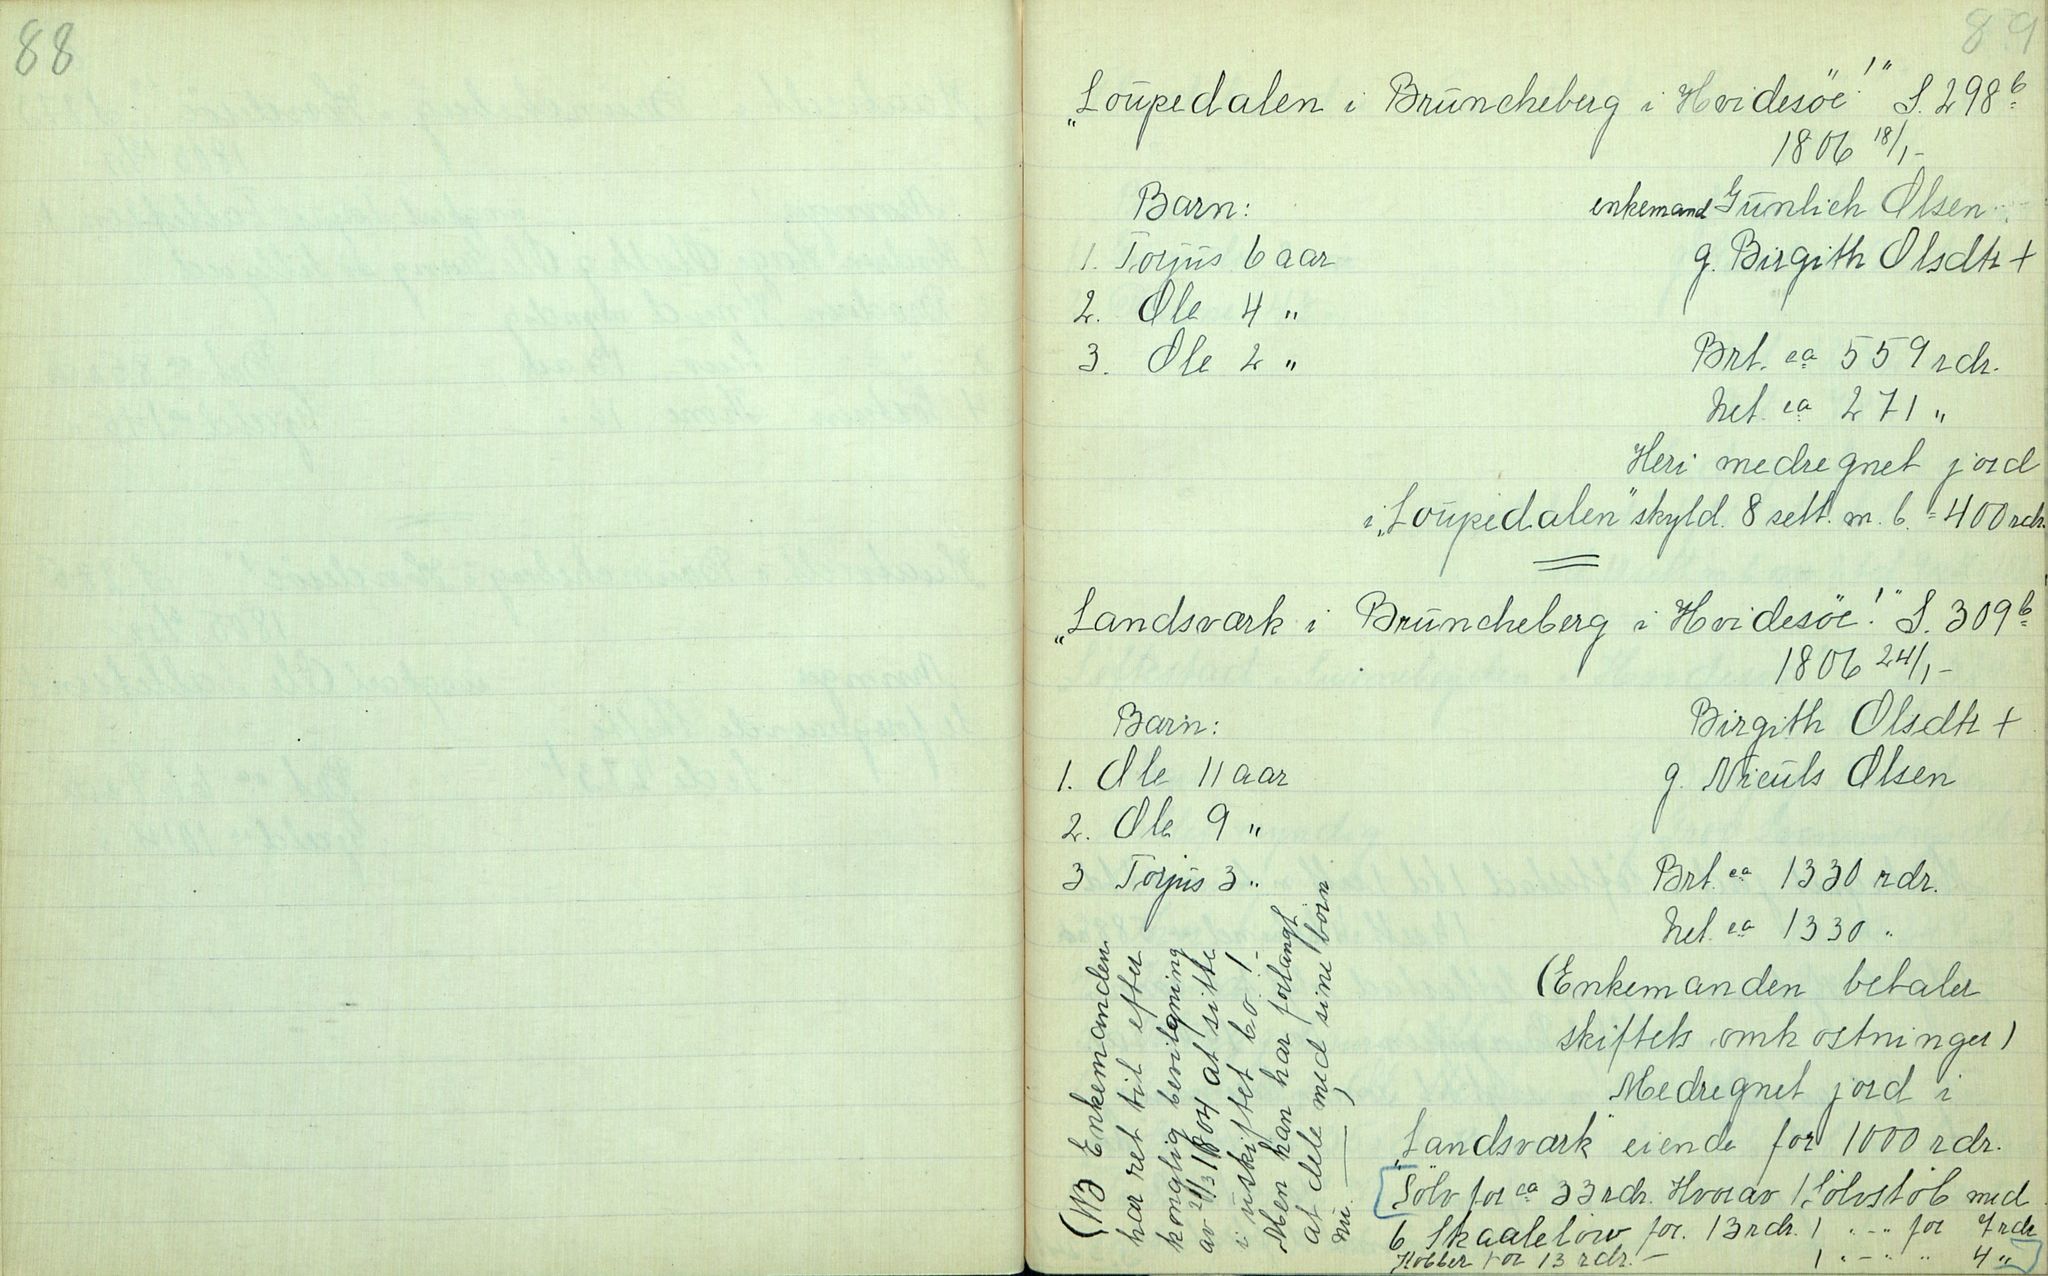 88
89
„Loupedalen i Brüncheberg i Hvidesöe!" S. 298 b
1806 18/1 -
Barn:
enkemand Günlich Olsen
1. Torjüs 6 aar
g. Birgith Olsdtr +
2. Ole 4 "
3. Ole 2 "
Brt. ca 559 rdr.
Net. ca 271 "
Heri medregnet jord
i „Loupedalen" skyld. 8 sett. m. b. = 400 rdr.
„Landsværk i Brüncheberg i Hvidesöe!" S. 309 b
1806 24/1 -
Barn:
Birgith Olsdtr +
1. Ole 11 aar
g. Nieüls Olsen
2. Ole 9 "
3 Torjüs 3 "
Brt. ca 1330 rdr.
Net. ca 1330 "
(Enkemanden betaler
skiftets omkostninger)
Medregnet jord i
„Landsværk" eiende for 1000 rdr.
[Sölv for ca 33 rdr. Hvorav 1 Sölvstöb med
6 Skaalelöiv for. 13 rdr. 1 " - " for 7 rdr
Kobber for 13 rdr. - 1 " - " " 4 "]
(NB Enkemanden
har ret til efter
konglig bevilgning
av 21/3 1804 at sitte
i üskiftet bo! -
Men han har forlangt
at dele med sine börn
nü. — )